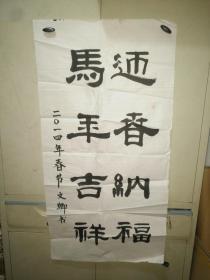 迊春納福
馬年吉祥
二〇一四年春节文卿书